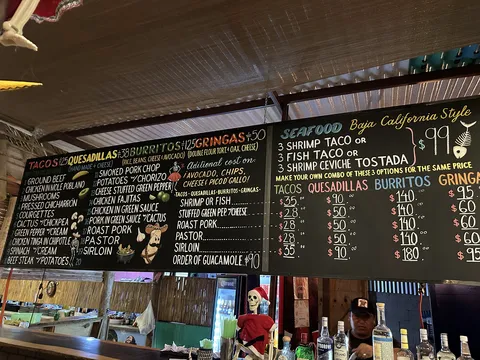 TACOS $25 QUESADILLAS $38 BURRITOS $125 GRINGAS $50
(HAND MADE + CHEESE) (RICE, BEANS, CHEESE & AVOCADO) (FLOUR TORT + OAX. CHEESE)
GROUND BEEF
CHICKEN IN MOLE POBLANO
MUSHROOMS
PRESSED CHICHARRON
COURGETTES
CACTUS "CHOPEKA
GREEN PEPPER "CREAM
CHICKEN TINGA "CHIPOTLE
SPINACH "CREAM
BEEF STEAK "POTATOES
SMOKED PORK CHOP
POTATOES "CHORIZO
CHEESE STUFFED GREEN PEPPER
CHICKEN FAJITAS
CHICKEN IN GREEN SAUCE
PORK IN GREEN SAUCE "CACTUS
ROAST PORK
PASTOR
SIRLOIN
Aditional cost on:
AVOCADO, CHIPS,
CHEESE & PICO D/GALLO
TACOS-QUESADILLAS-BURRITOS-GRINGAS
SHRIMP OR FISH
STUFFED GREEN PEP "CHEESE
ROAST PORK
PASTOR
SIRLOIN
ORDER OF GUACAMOLE $90
SEAFOOD Baja California Style
3 SHRIMP TACO OR
3 FISH TACO OR
3 SHRIMP CEVICHE TOSTADA
$99
MAKE YOUR OWN COMBO OF THESE 3 OPTIONS FOR THE SAME PRICE
TACOS QUESADILLAS BURRITOS GRINGAS
$35 $90 $140 $95
$40 $50 $140 $60
$28 $50 $140 $60
$28 $40 $110 $60
$35 $90 $180 $95